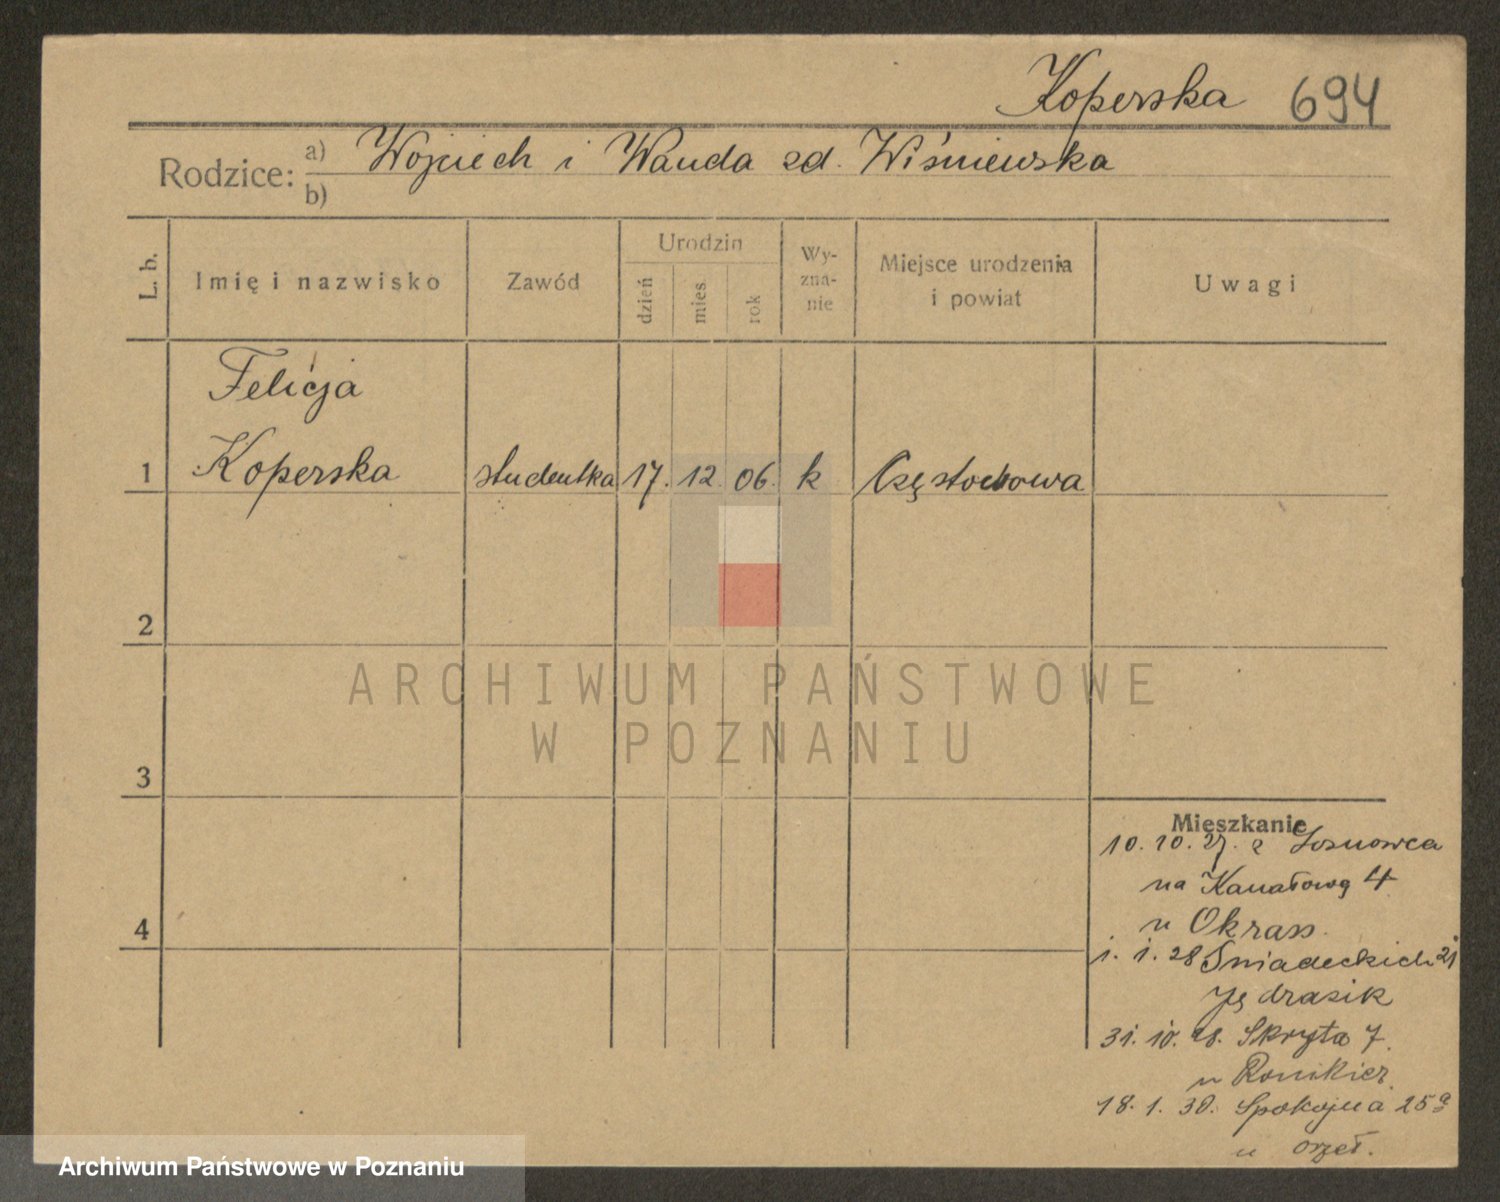 Koperska 694
Rodzice: a) Wojciech i Wanda zd. Wiśniewska
b)
L. b. Imię i nazwisko Zawód Urodzin dzień mies. rok Wy-zna-nie Miejsce urodzenia i powiat Uwagi
Felicja
1 Koperska studentka 17. 12. 06. k Częstochowa
2
3
4
Mieszkanie
10. 10. 27. z Sosnowca
na Kanałową 4
u Okrass
1. 1. 28 Śniadeckich 21
Jędrasik
31. 10. 28. Skryta 7.
u Ronikier
18. 1. 30. Spokojna 25a
u
ARCHIWUM PAŃSTWOWE
W POZNANIU
Archiwum Państwowe w Poznaniu